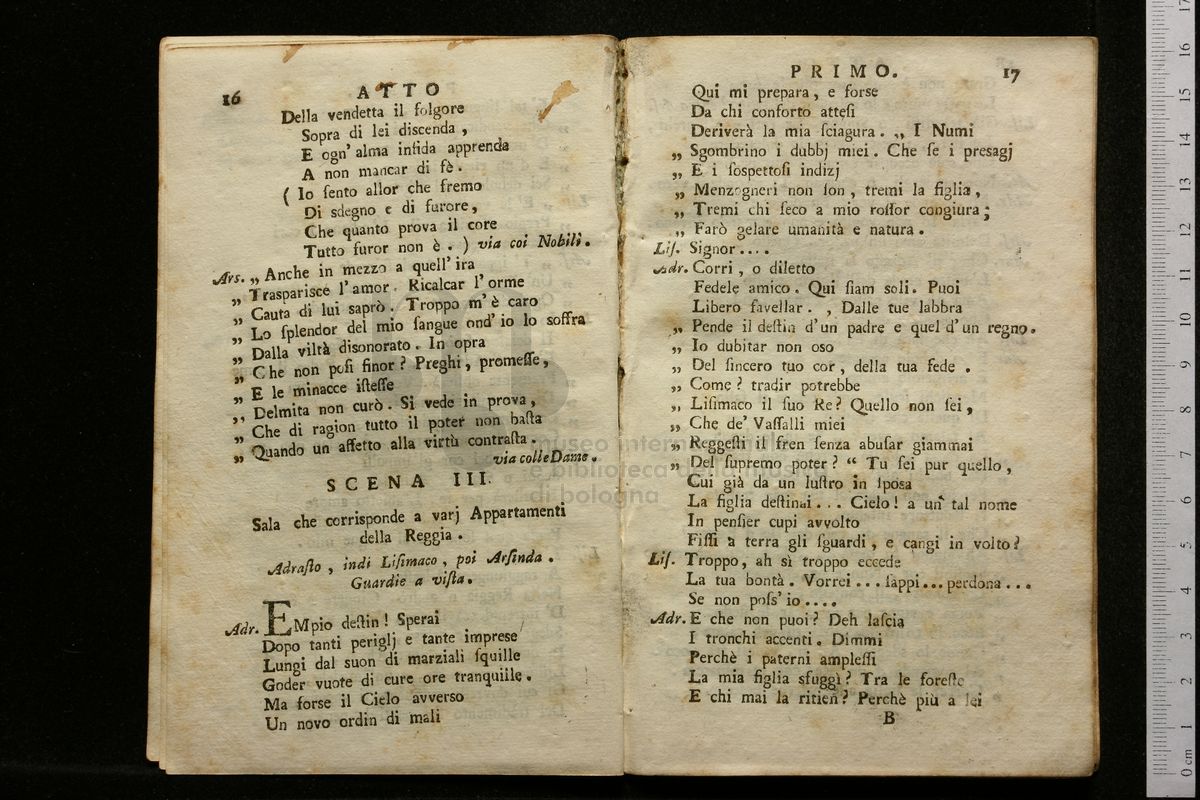 16
ATTO
Della vendetta il folgore
Sopra di lei discenda,
E ogn' alma infida apprenda
A non mancar di fè.
( Io ſento allor che fremo
Di sdegno e di furore,
Che quanto prova il core
Tutto furor non è. ) via coi Nobili.
Ars. „ Anche in mezzo a quell' ira
„ Trasparisce l' amor. Ricalcar l' orme
„ Cauta di lui saprò. Troppo m' è caro
„ Lo ſplendor del mio ſangue ond' io lo soffra
„ Dalla viltà disonorato. In opra
„ Che non poſi finor? Preghi, promeſſe,
„ E le minacce iſteſſe
„ Delmita non curò. Si vede in prova,
„ Che di ragion tutto il poter non baſta
„ Quando un affetto alla virtù contraſta.
via colle Dame.
SCENA III.
Sala che corrisponde a varj Appartamenti
della Reggia.
Adraſto, indi Liſimaco, poi Arſinda.
Guardie a viſta.
Adr. EMpio deſtin! Sperai
Dopo tanti periglj e tante imprese
Lungi dal suon di marziali ſquille
Goder vuote di cure ore tranquille.
Ma forse il Cielo avverso
Un novo ordin di mali
PRIMO.
17
Qui mi prepara, e forse
Da chi conforto atteſi
Deriverà la mia ſciagura. „ I Numi
„ Sgombrino i dubbj miei. Che ſe i presagj
„ E i ſospettoſi indizj
„ Menzogneri non ſon, tremi la figlia,
„ Tremi chi ſeco a mio roſſor congiura;
„ Farò gelare umanità e natura.
Liſ. Signor....
Adr. Corri, o diletto
Fedele amico. Qui ſiam soli. Puoi
Libero favellar. , Dalle tue labbra
„ Pende il deſtin d' un padre e quel d' un regno.
„ Io dubitar non oso
„ Del ſincero tuo cor, della tua fede.
„ Come? tradir potrebbe
„ Liſimaco il ſuo Re? Quello non ſei,
„ Che de' Vaſſalli miei
„ Reggeſti il fren ſenza abuſar giammai
„ Del ſupremo poter? “ Tu ſei pur quello,
Cui già da un luſtro in ſposa
La figlia deſtinai... Cielo! a un tal nome
In penſier cupi avvolto
Fiſſi a terra gli ſguardi, e cangi in volto?
Liſ. Troppo, ah sì troppo eccede
La tua bontà. Vorrei... ſappi... perdona...
Se non poſs' io....
Adr. E che non puoi? Deh laſcia
I tronchi accenti. Dimmi
Perchè i paterni ampleſſi
La mia figlia sfuggì? Tra le foreſte
E chi mai la ritien? Perchè più a lei
B
museo internazionale
e biblioteca della musica
di bologna
0 cm 1 2 3 4 5 6 7 8 9 10 11 12 13 14 15 16 17